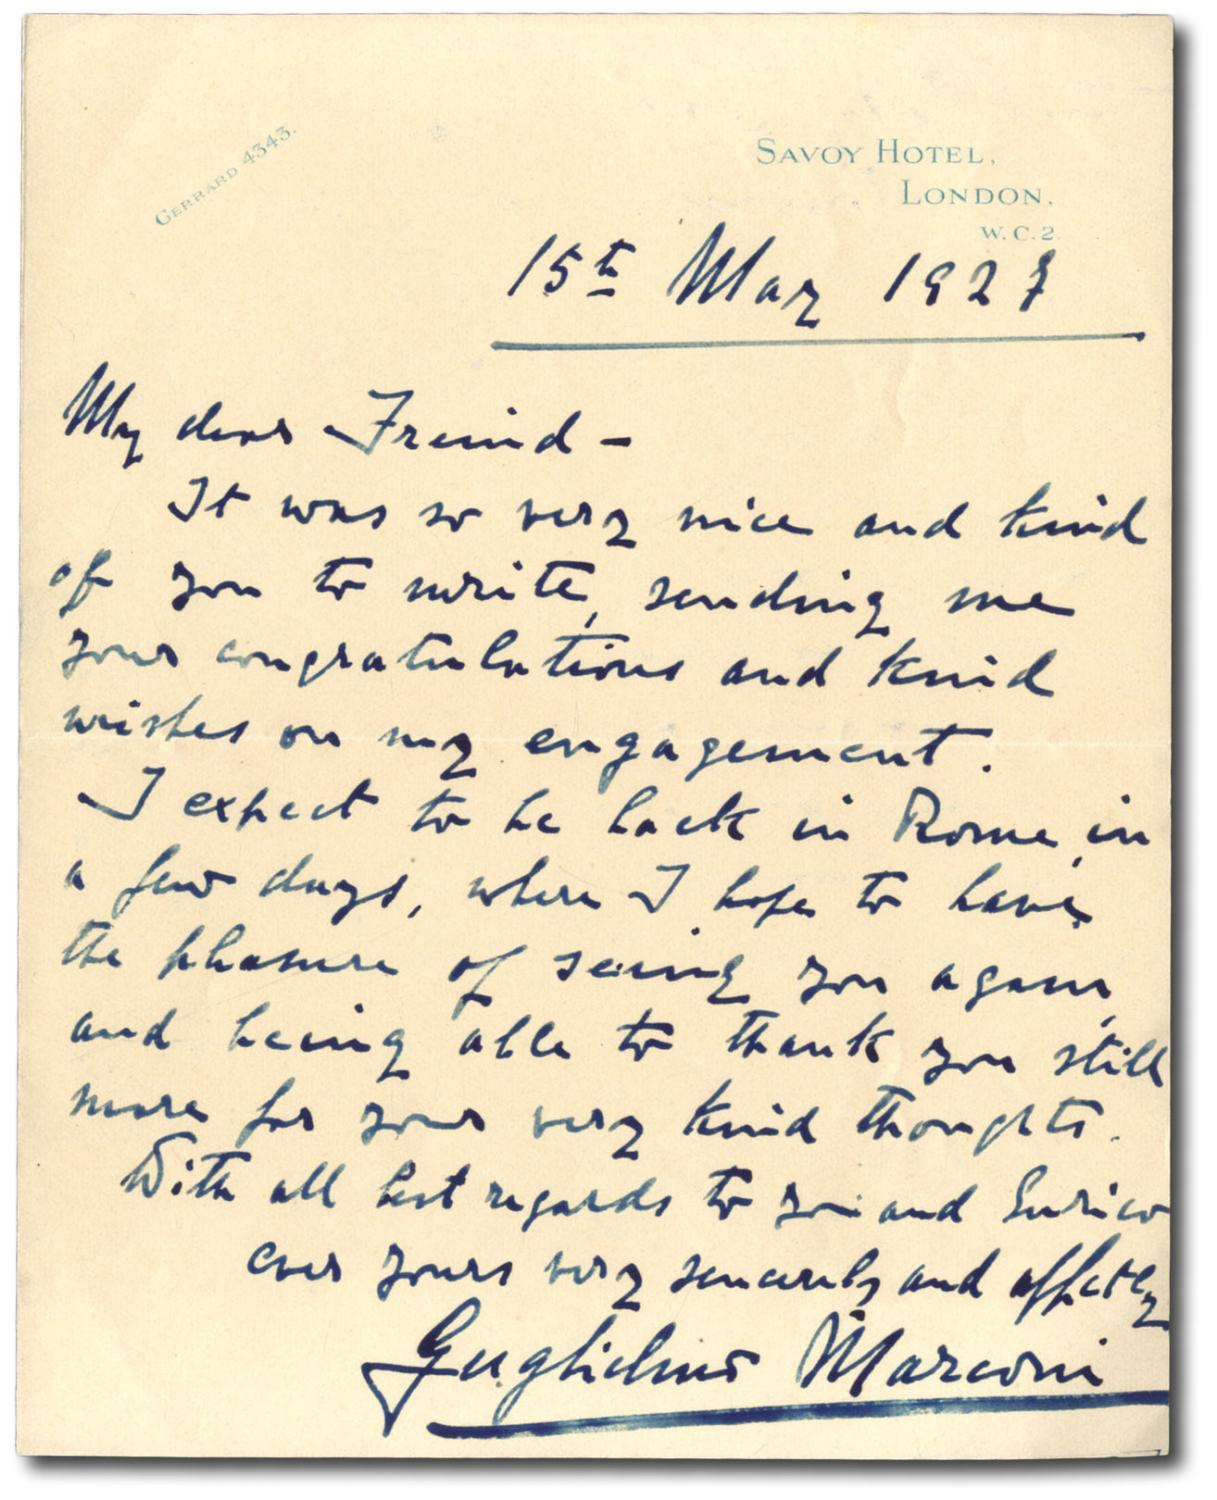 GERRARD 4343.
SAVOY HOTEL,
LONDON,
W.C.2.
15th May 1927
My dear Freind –
It was so very nice and kind
of you to write, sending me
your congratulations and kind
wishes on my engagement.
I expect to be back in Rome, in
a few days, where I hope to have
the pleasure of seeing you again,
and being able to thank you still
more for your very kind thoughts.
With all best regards to you and Enrico
ever yours very sincerely and affctly
Guglielmo Marconi